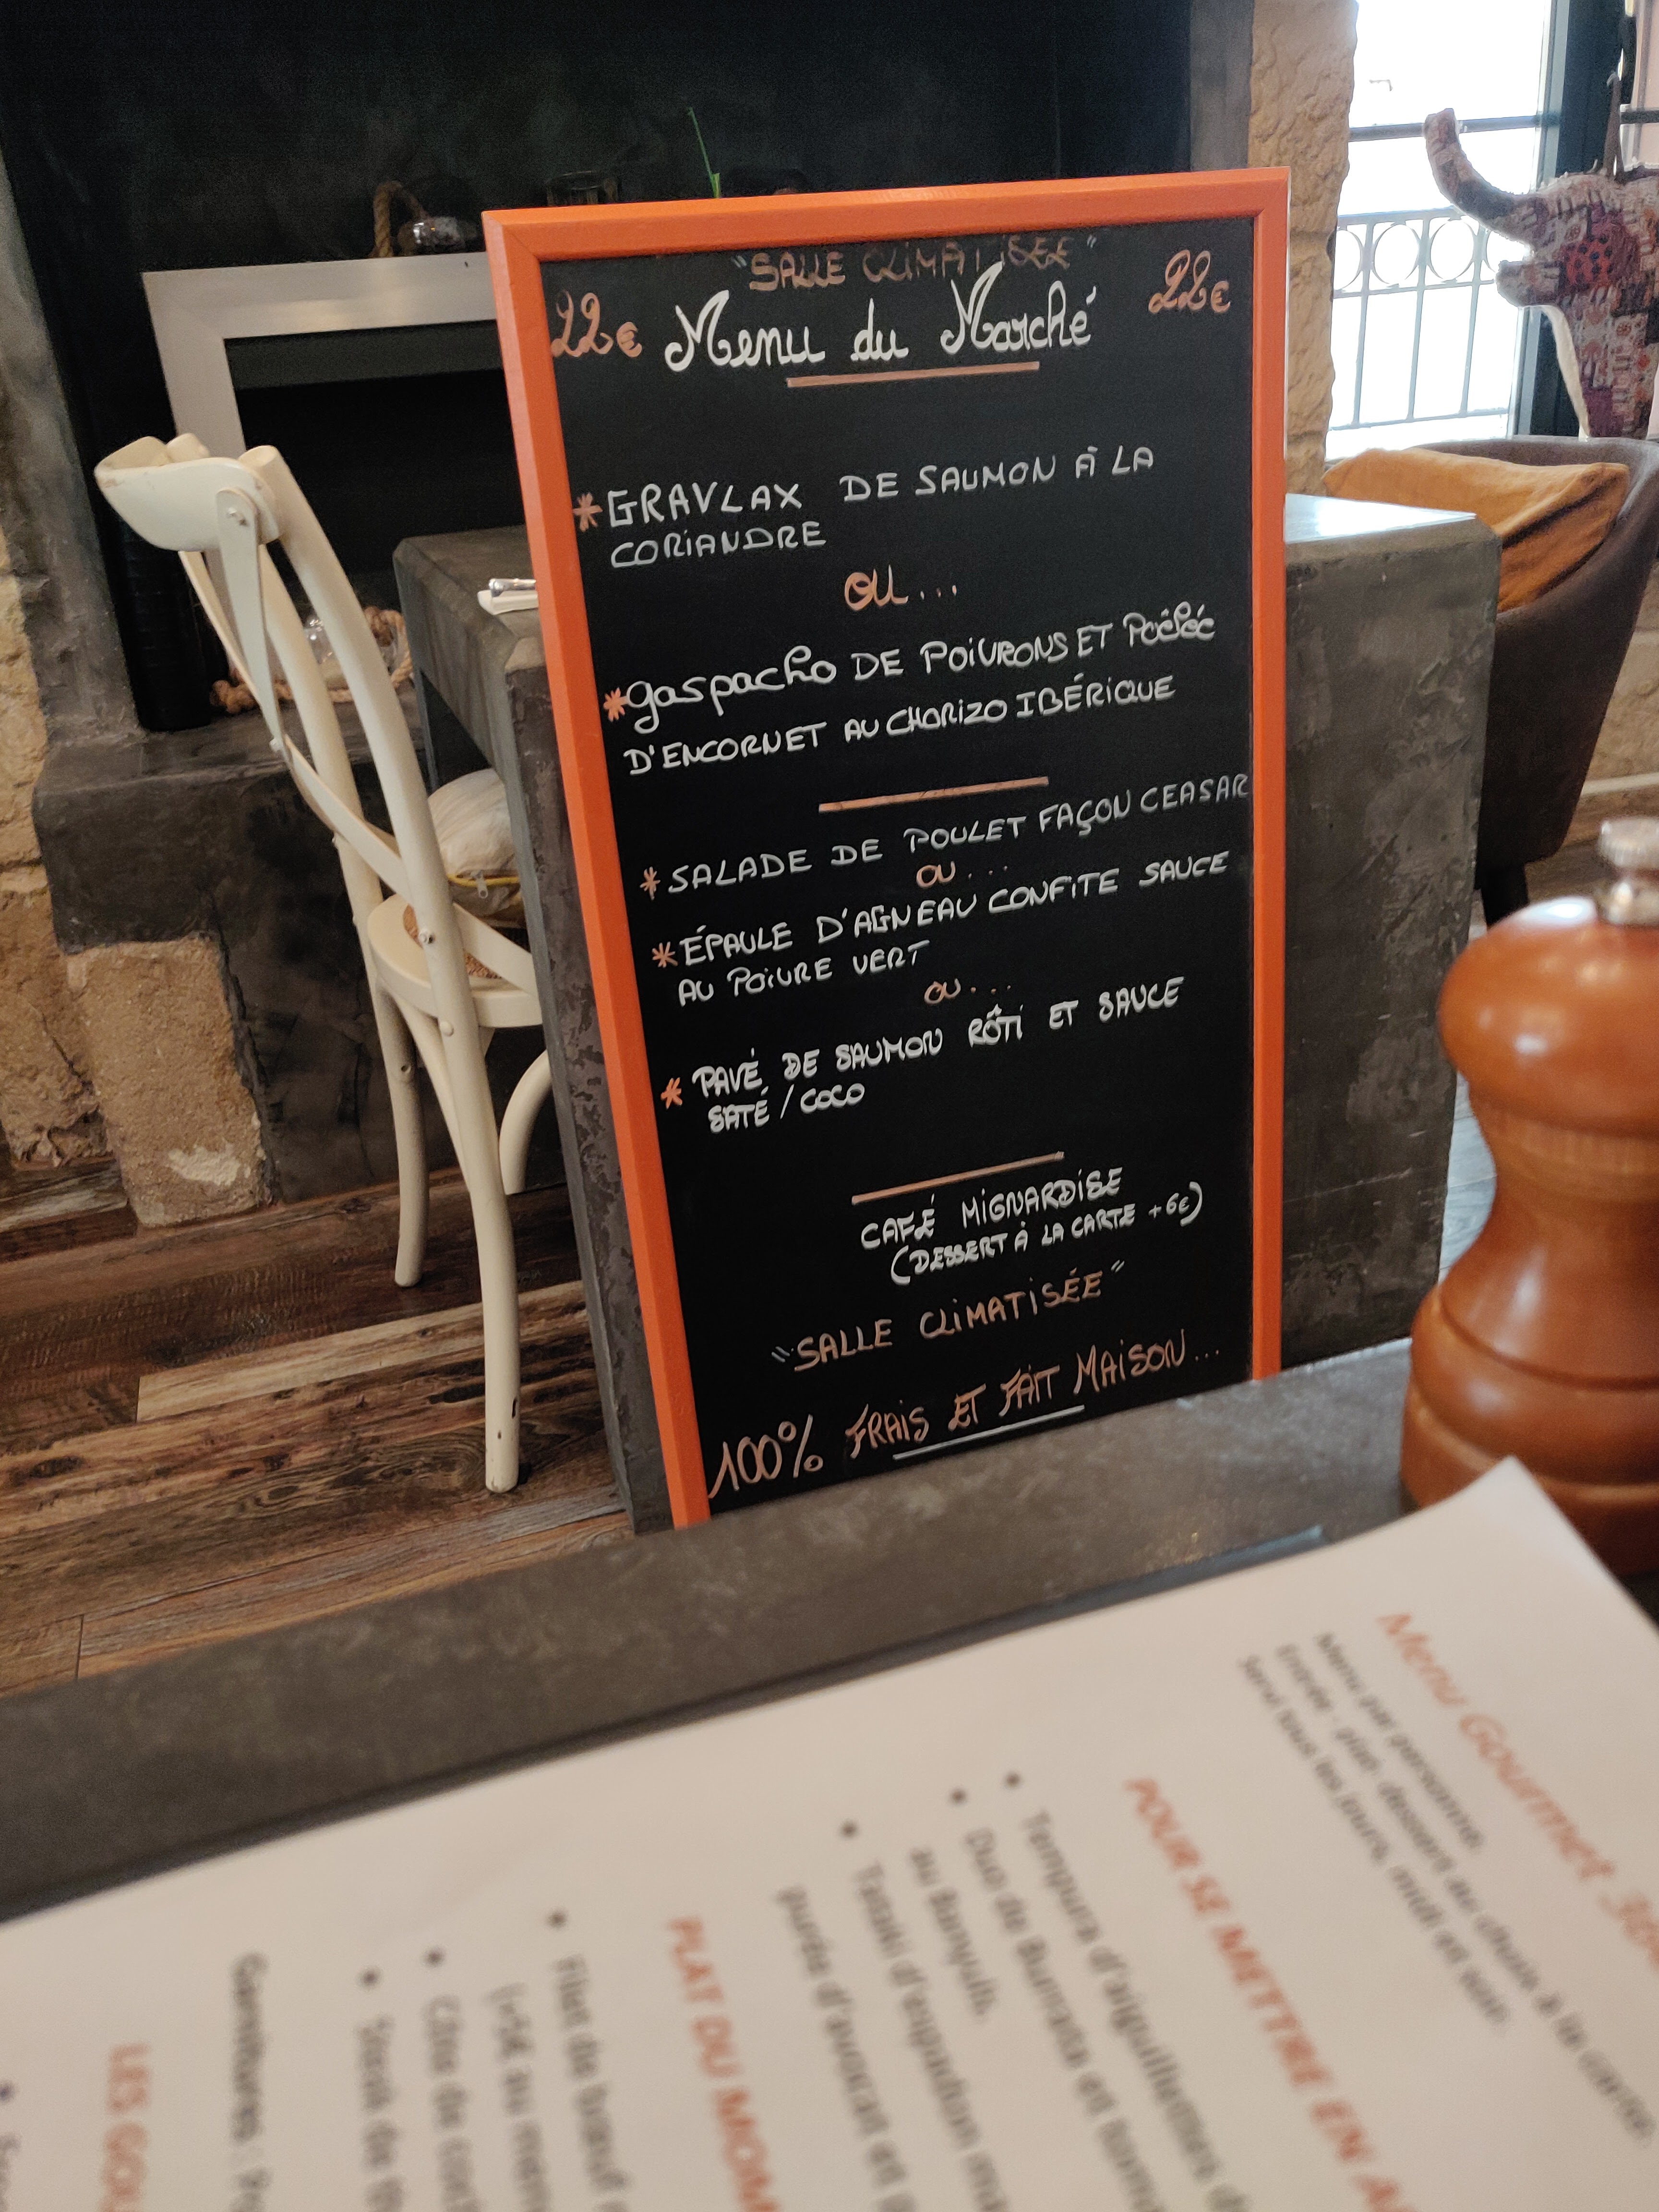 "SALLE CLIMATISÉE"
22€ Menu du Marché 22€
*GRAVLAX DE SAUMON À LA
CORIANDRE
OU...
*gaspacho DE POIVRONS ET Poêlée
D'ENCORNET AU CHORIZO IBÉRIQUE
*SALADE DE POULET FAÇON CEASAR
OU...
*ÉPAULE D'AGNEAU CONFITE SAUCE
AU POIVRE VERT
OU...
*PAVÉ DE SAUMON RÔTI ET SAUCE
SATÉ / COCO
CAFÉ MIGNARDISE
(DESSERT À LA CARTE +6€)
"SALLE CLIMATISÉE"
100% FRAIS ET FAIT MAISON...
Menu Gourmet
Menu par personne.
Entrée - plat- dessert au choix à la carte.
Servi tous les jours, midi et soir.
POUR SE METTRE EN
• Tempura d'aiguillettes
• Duo de Burrata et
au Banyuls.
• Tataki d'espadon
purée d'avocat et
PLAT DU
• Filet de bœuf
(+5€ au menu
• Côte de
•
LES
Garnitures :